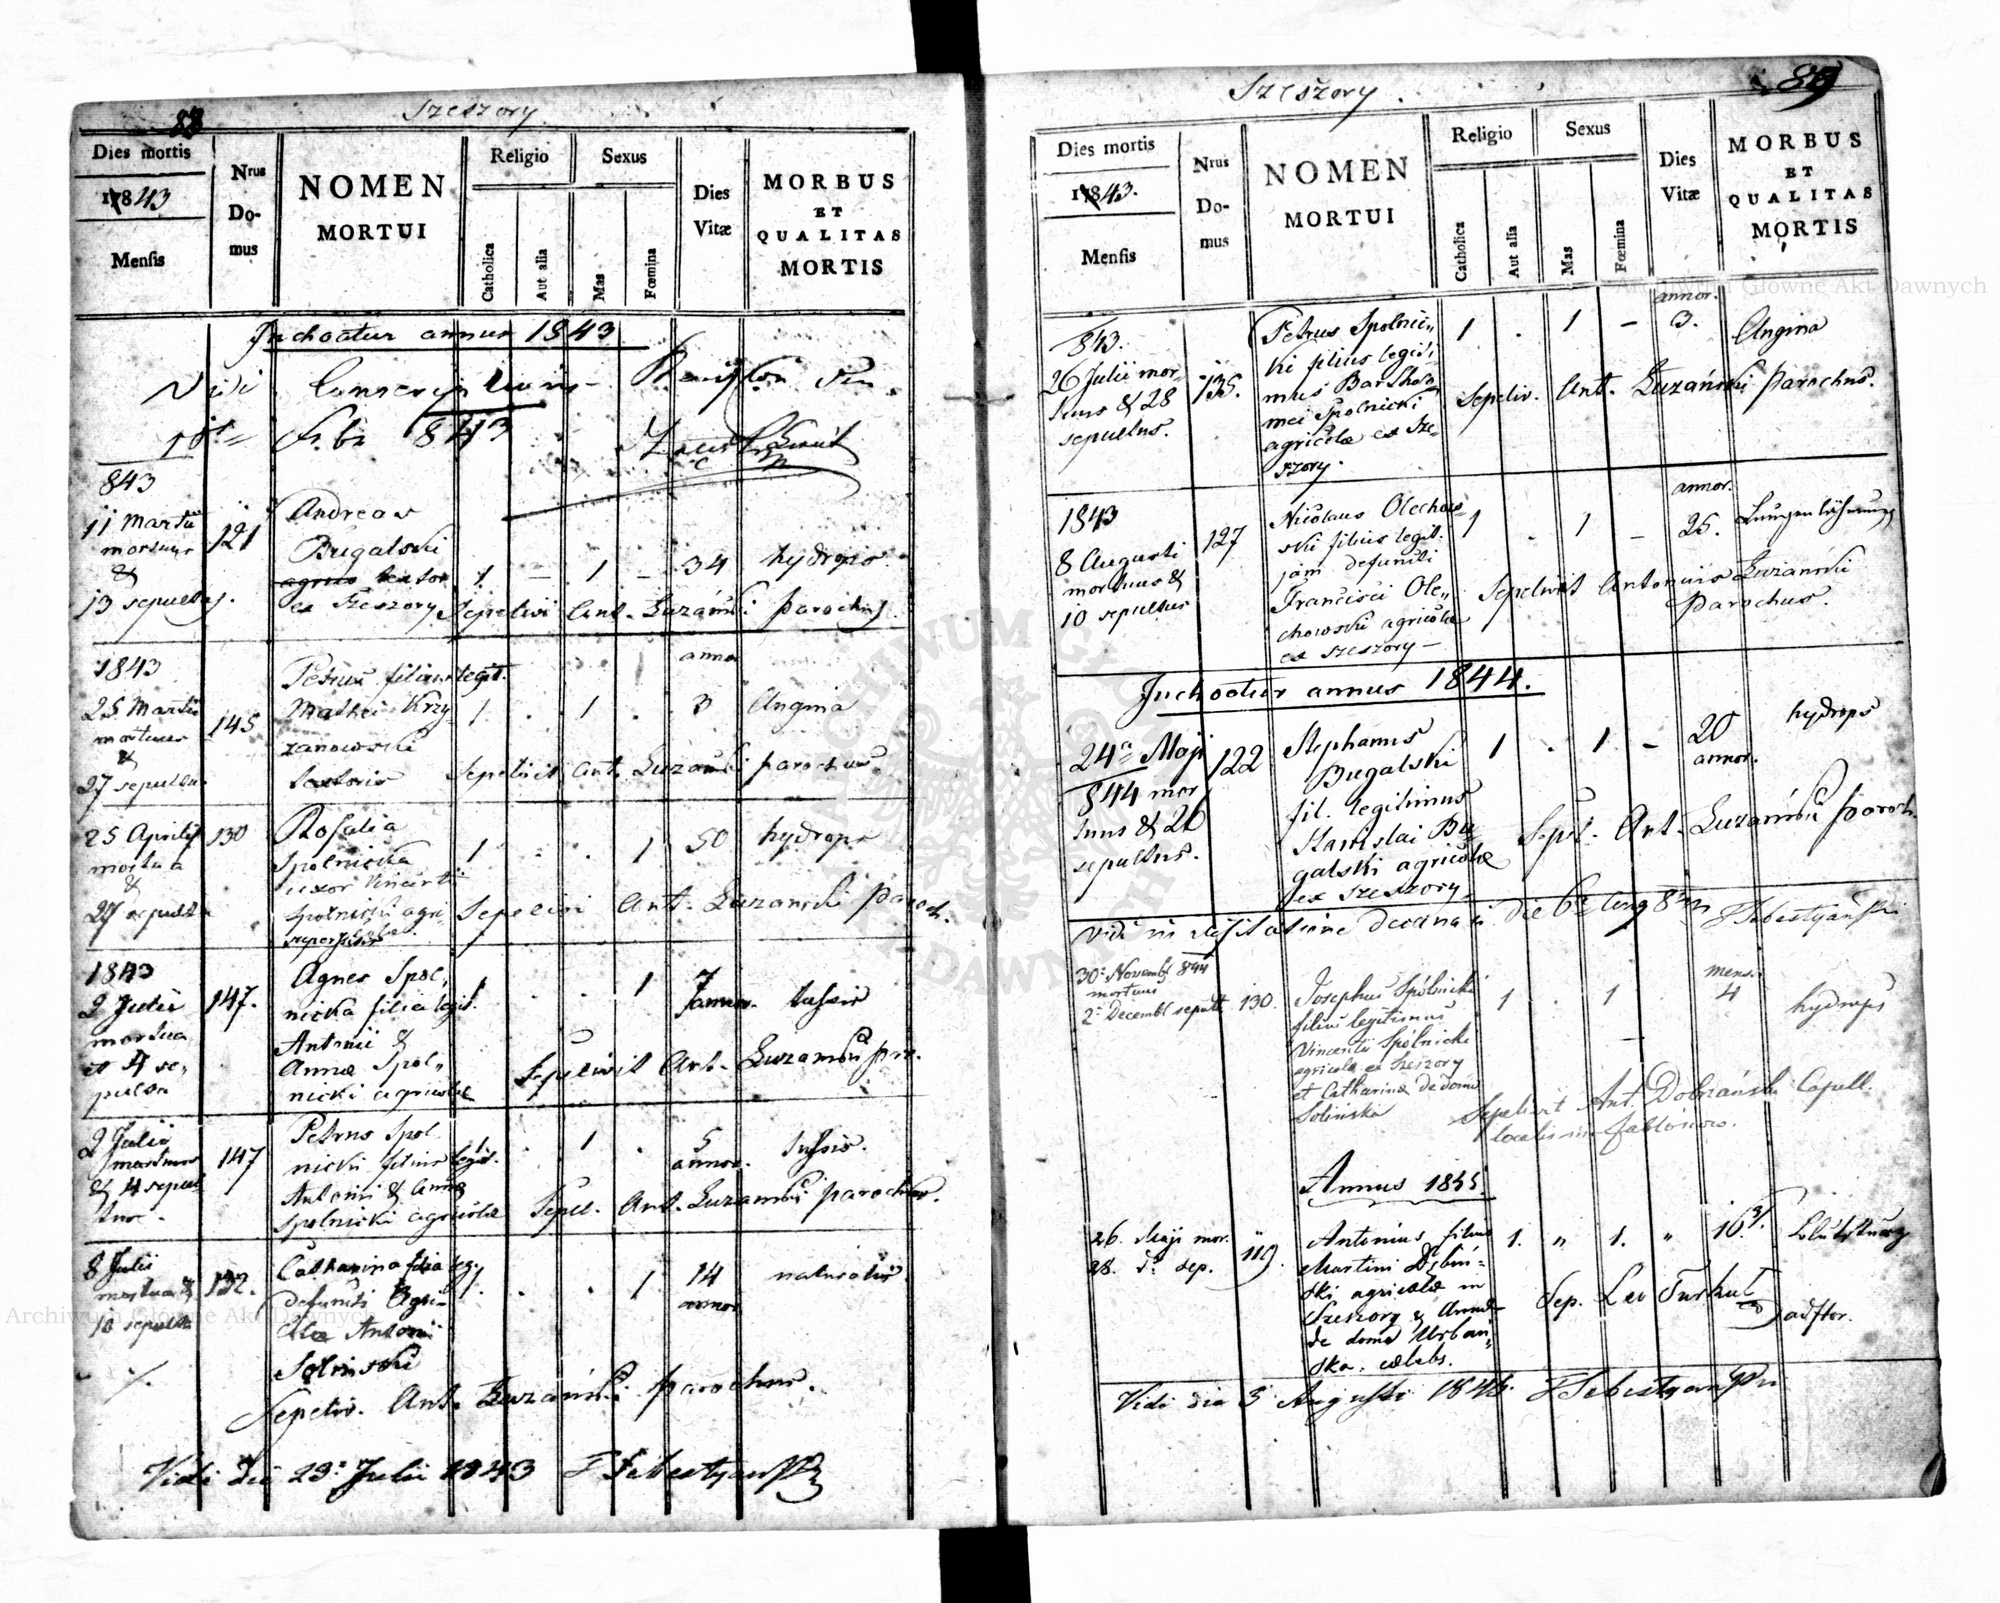 88
Szeszory
Dies mortis
1843
Mensis
Nrus
Do-
mus
NOMEN
MORTUI
Religio
Catholica
Aut alia
Sexus
Mas
Fœmina
Dies
Vitæ
MORBUS
ET
QUALITAS
MORTIS
Inchoatur annus 1843
Vidi
843
11 Martii
mortuus
&
13 sepultus.
121
Andreas
Bugalski
textor
ex Szeszory
1 – 1 – 34 hydrops
Sepelivi Ant. Luzański parochus.
1843
25 Martii
mortuus
&
27 sepultus
145
Petrus filius legit.
Mathei Krzy-
zanowski
textoris
1 . 1 .
annor
3
Angina
Sepelivit Ant. Luzański parochus.
25 Aprilis
mortua
&
27 sepulta
130
Rosalia
Spolnicka
uxor Vincentii
Spolnicki agri-
1 . . 1 50 hydrops
Sepelivi Ant. Luzański paroch.
1843
2 Julii
mortua
et 4 se-
pulta
147.
Agnes Spol„
nicka filia legit.
Antonii &
Anna Spol„
nicki agricolæ
1 . . 1 7
annor.
tussis
Sepelivit Ant. Luzański par.
2 Julii
mortuus
& 4 sepul
tus.
147
Petrus Spol-
nicki filius legit.
Antonii & Annæ
Spolnicki agricolæ
1 . 1 . 5
annor.
tussis.
Sepel. Ant. Luzański parochus.
8 Julii
mortua &
10 sepulta
132.
Catharina filia leg.
defuncti Agri-
colæ Antonii
Solinski
1 . . 1 14
annor
naturalis
Sepeliv. Ant. Luzański parochus.
Vidi die 23: Julii 1843
89
Szeszory.
Dies mortis
1843.
Mensis
Nrus
Do-
mus
NOMEN
MORTUI
Religio
Catholica
Aut alia
Sexus
Mas
Fœmina
Dies
Vitæ
MORBUS
ET
QUALITAS
MORTIS
843.
26 Julii mor-
tuus & 28
sepultus.
135.
Petrus Spolnic„
ki filius legiti„
mus Bartholo
mei Spolnicki
agricolæ ex Sze-
szory.
1 . 1 –
annor.
3.
Angina
Sepeliv. Ant. Luzański parochus.
1843
8 Augusti
mortuus &
10 sepultus
127
Nicolaus Olechow-
ski filius legit.
jam defuncti
Francisci Ole„
chowski agricolæ
ex Szeszory –
1 . 1 –
annor.
25.
Lungenlähmung
Sepelivit Antonius Luzański
parochus.
Inchoatur annus 1844.
24a Maji
844 mor
tuus & 26
sepultus.
122
Stephanus
Bugalski
fil. legitimus
Stanislai Bu
galski agricolæ
ex Szeszory.
1 . 1 – 20
annor.
hydrops
Sepl. Ant. Luzański paroch.
30: Novemb 844
mortuus
2: Decembr sepult
130.
Josephus Spólnicki
filius legitimus
Vincentii Spólnicki
agricola ex Szeszory
et Catharina de domo
Solińska
1 . 1 –
mens.
4
hydrops
Sepelivit Ant. Dobrański Capell.
localis in Jabłonow.
Annus 1845.
26. Maji mor.
28. d. sep.
119.
Antonius filius
Martini Dębin-
ski agricolæ in
Szeszory & Annæ
de domo Urban„
ska. cœlebs.
1. „ 1. „ 16
Blutsturz
Sep. Leo Turkuł
adstor.
Vidi die 5 Augusti
Archiwum Główne Akt Dawnych
Archiwum Główne Akt Dawnych
ARCHIWUM GŁÓWNE AKT DAWNYCH